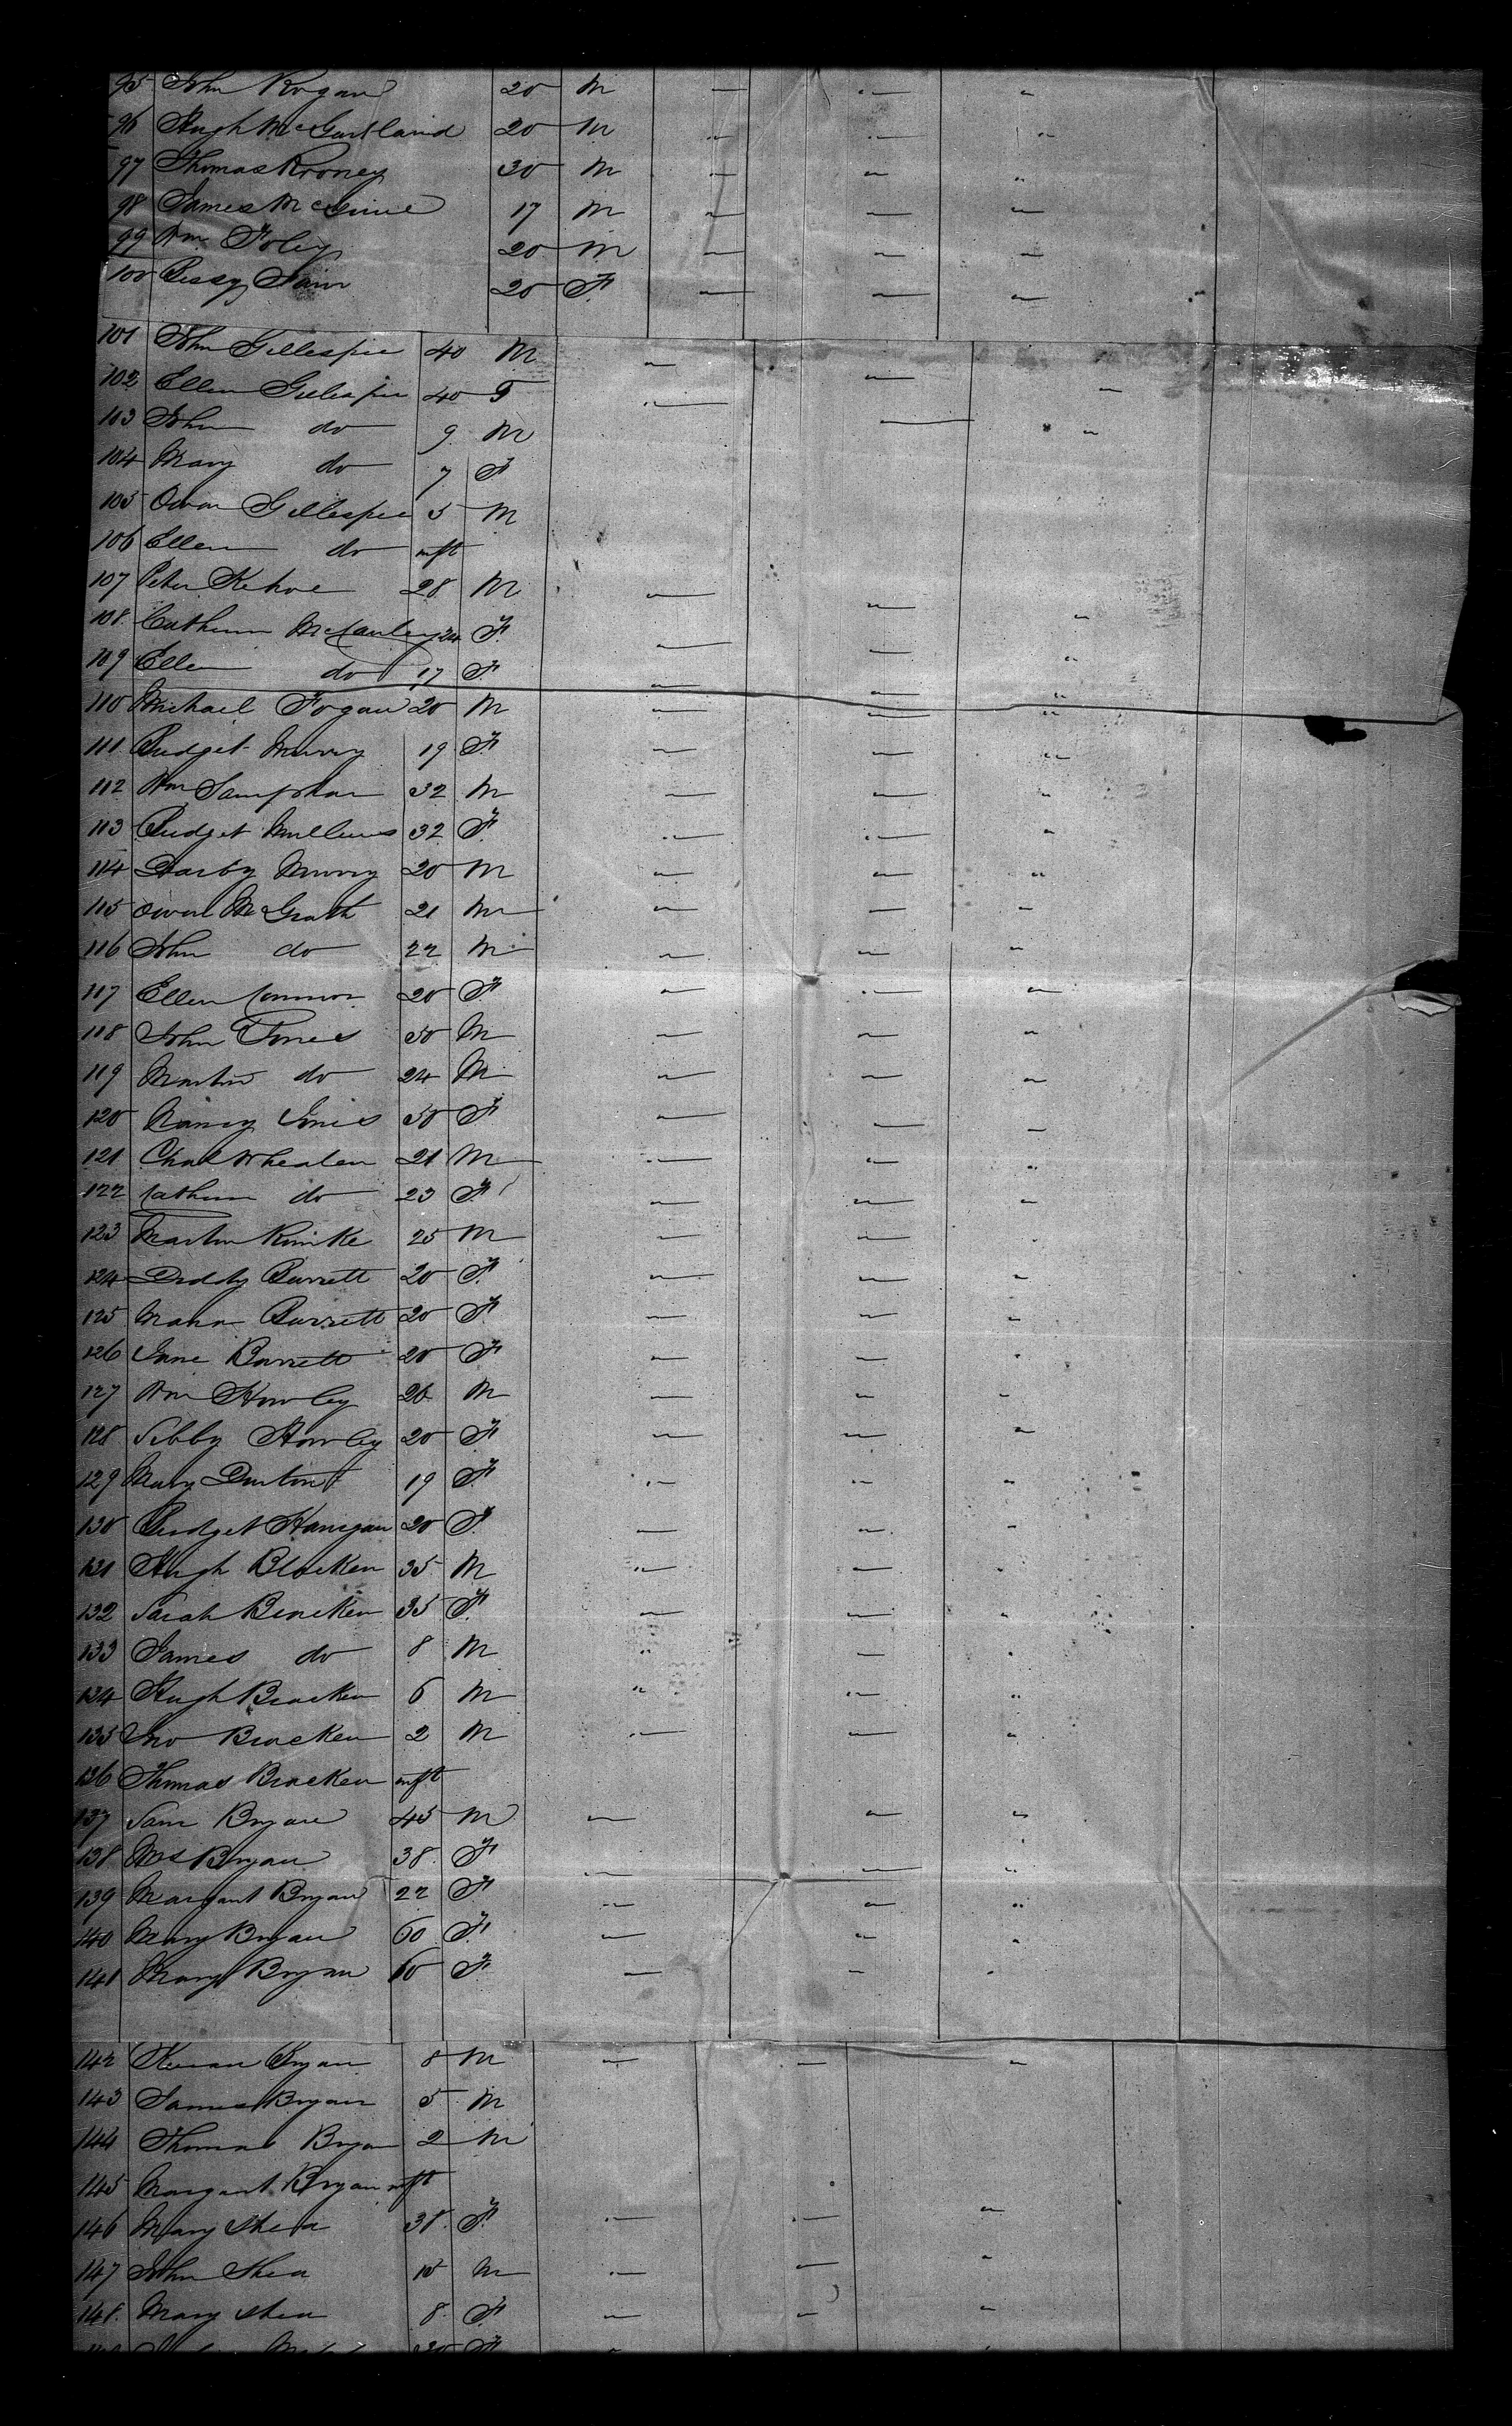 95 John Rogan 20 M — " — "
96 Hugh McGartland 20 M " — " — "
97 Thomas Rooney 30 M — — "
98 James McGuire 17 M — — —
99 Wm Foley 20 M — — "
100 Bessy 20 F — — —
101 John Gillespie 40 M — —
102 Ellen Gillespie 40 F — — —
103 John do 9 M
104 Mary do 7 F
105 Owen Gillespie 5 M
106 Ellen do inft
107 Peter Kehoe 28 M — — "
108 Catherine McCauley 24 F — — "
109 Ellen do 17 F — — "
110 Michael Fogan 20 M — — "
111 Bridget Murry 19 F — — "
112 Wm Sampson 32 M — — "
113 Bridget Mullins 32 F — — "
114 Darby Murry 20 M — — "
115 Owen McGrath 21 M — — "
116 John do 22 M — — "
117 Ellen Connor 20 F — — —
118 John Jones 50 M — — "
119 Martin do 24 M — — "
120 Nancy Jones 50 F — — —
121 Chas Whealen 21 M — — "
122 Catherine do 23 F — — "
123 Martin 25 M — —
124 Biddy Barrett 20 F — — "
125 Maria Barrett 20 F — — "
126 Jane Barrett 20 F — — "
127 Wm Howley 26 M — — "
128 Sibby Howley 20 F — — "
129 Mary 19 F — — "
130 Bridget Hanigan 20 F — — "
131 Hugh Bracken 35 M — — "
132 Sarah Bracken 35 F — — "
133 James do 8 M " — "
134 Hugh Bracken 6 M " — "
135 Jno Bracken 2 M — — "
136 Thomas Bracken inft
137 Sam Bryan 45 M — — "
138 Mrs Bryan 38 F — — "
139 Margaret Bryan 22 F — — "
140 Mary Bryan 60 F — — "
141 Mary Bryan 10 F — — "
142 Kieran Bryan 8 M — — "
143 James Bryan 5 M
144 Thomas Bryan 2 M
145 Margaret Bryan inft
146 Mary Shea 38 F — — "
147 John Shea 10 M — — "
148 Mary Shea 8 F — — "
20 F